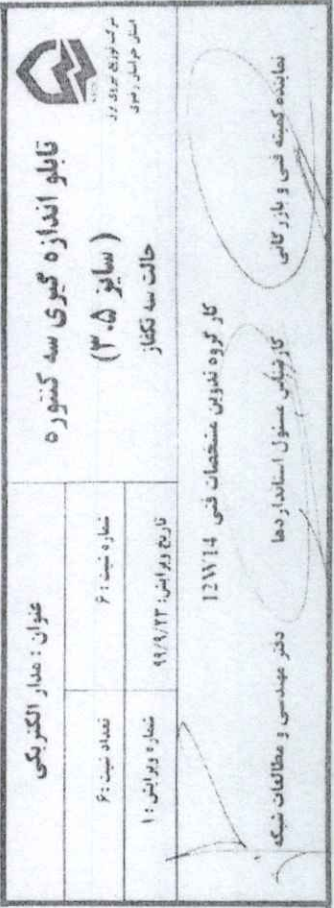 شرکت توزیع نیروی برق
استان خراسان رضوی
تابلو اندازه گیری سه کنتوره
( سایز ۳.۵)
حالت سه تکفاز
عنوان : مدار الکتریکی
شماره شیت : ۶
تعداد شیت : ۶
تاریخ ویرایش: ۹۹/۹/۲۳
شماره ویرایش : ۱
کار گروه تدوین مشخصات فنی 12W14
نماینده کمیته فنی و بازرگانی
کارشناس مسئول استانداردها
دفتر مهندسی و مطالعات شبکه